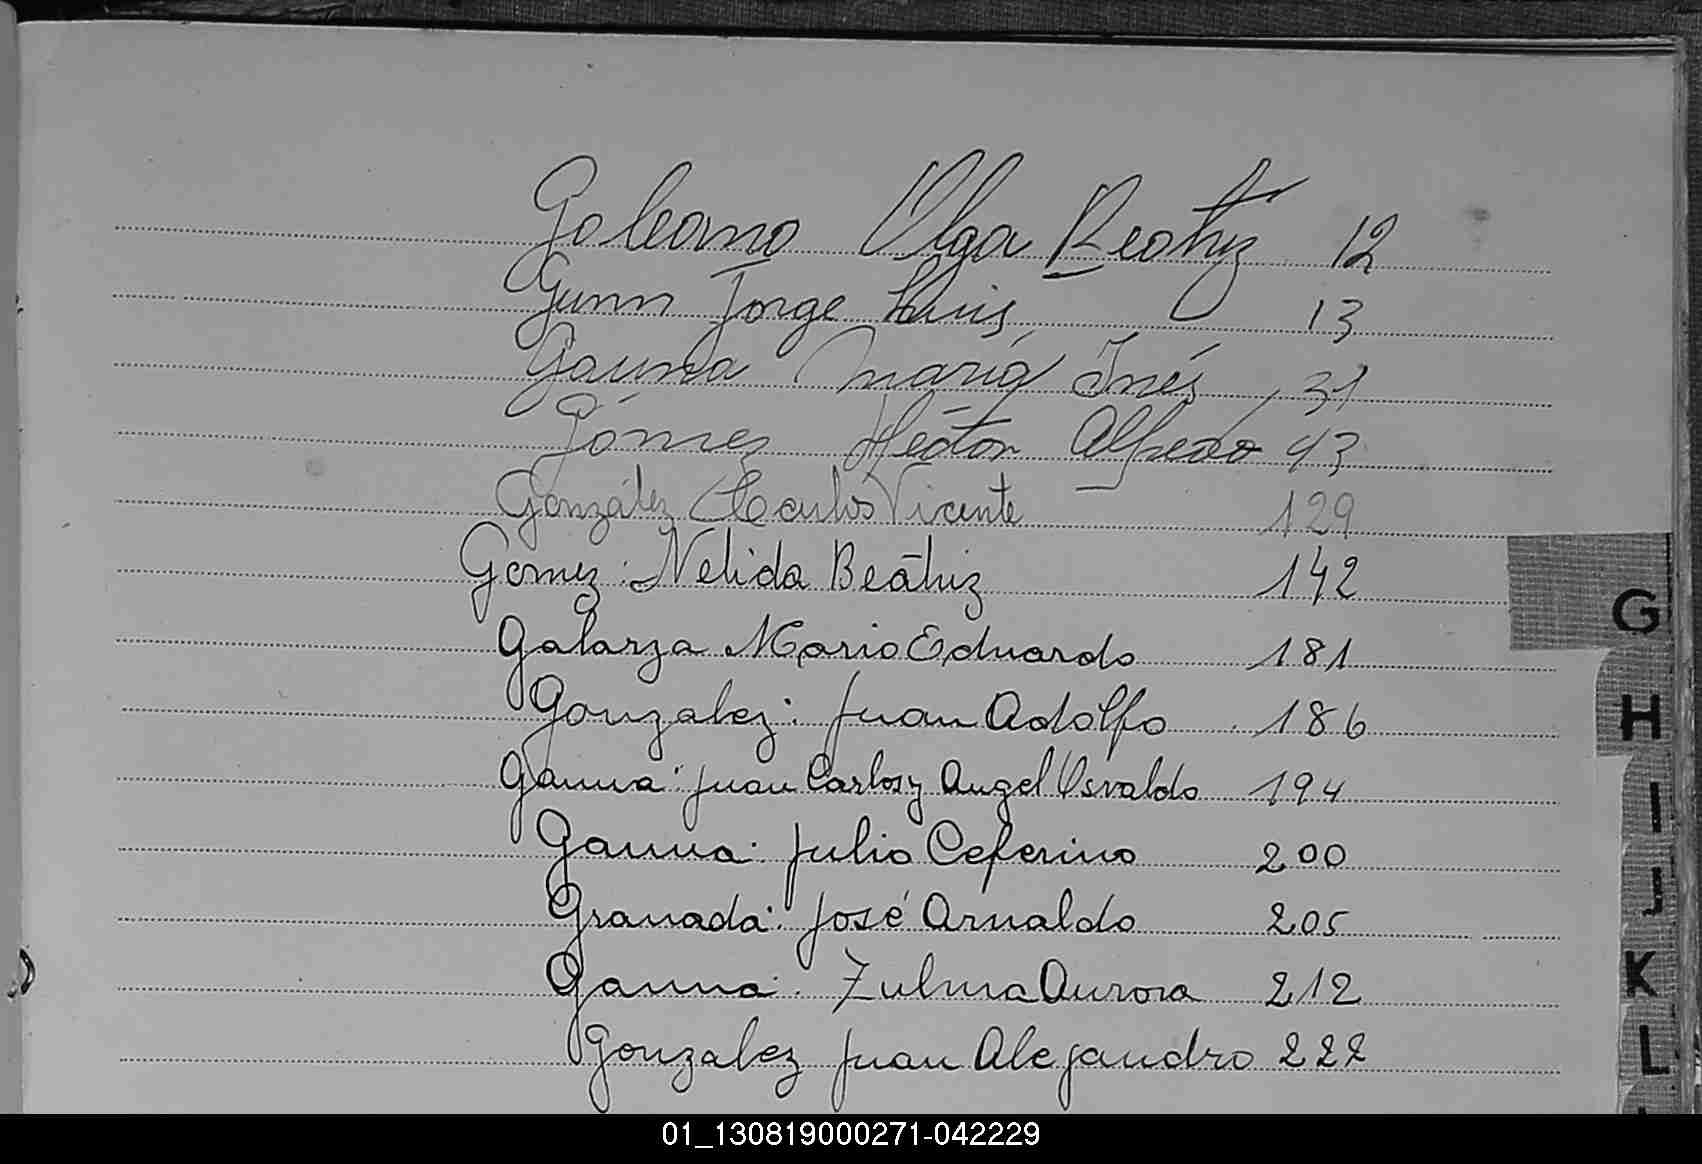 Galeano Olga Beatriz 12
Gunn Jorge Luis 13
Gauna María Inés 31
Gómez Héctor Alfredo 43
González Carlos Vicente 129
Gomez: Nelida Beátriz 142
Galarza Mario Eduardo 181
Gonzalez: Juan Adolfo 186
Gauna: Juan Carlos y Angel Osvaldo 194
Gauna: Julio Ceferino 200
Granada: José Arnaldo 205
Gauna: Zulma Aurora 212
Gonzalez Juan Alejandro 222
G
H
I
J
K
L
01_130819000271-042229